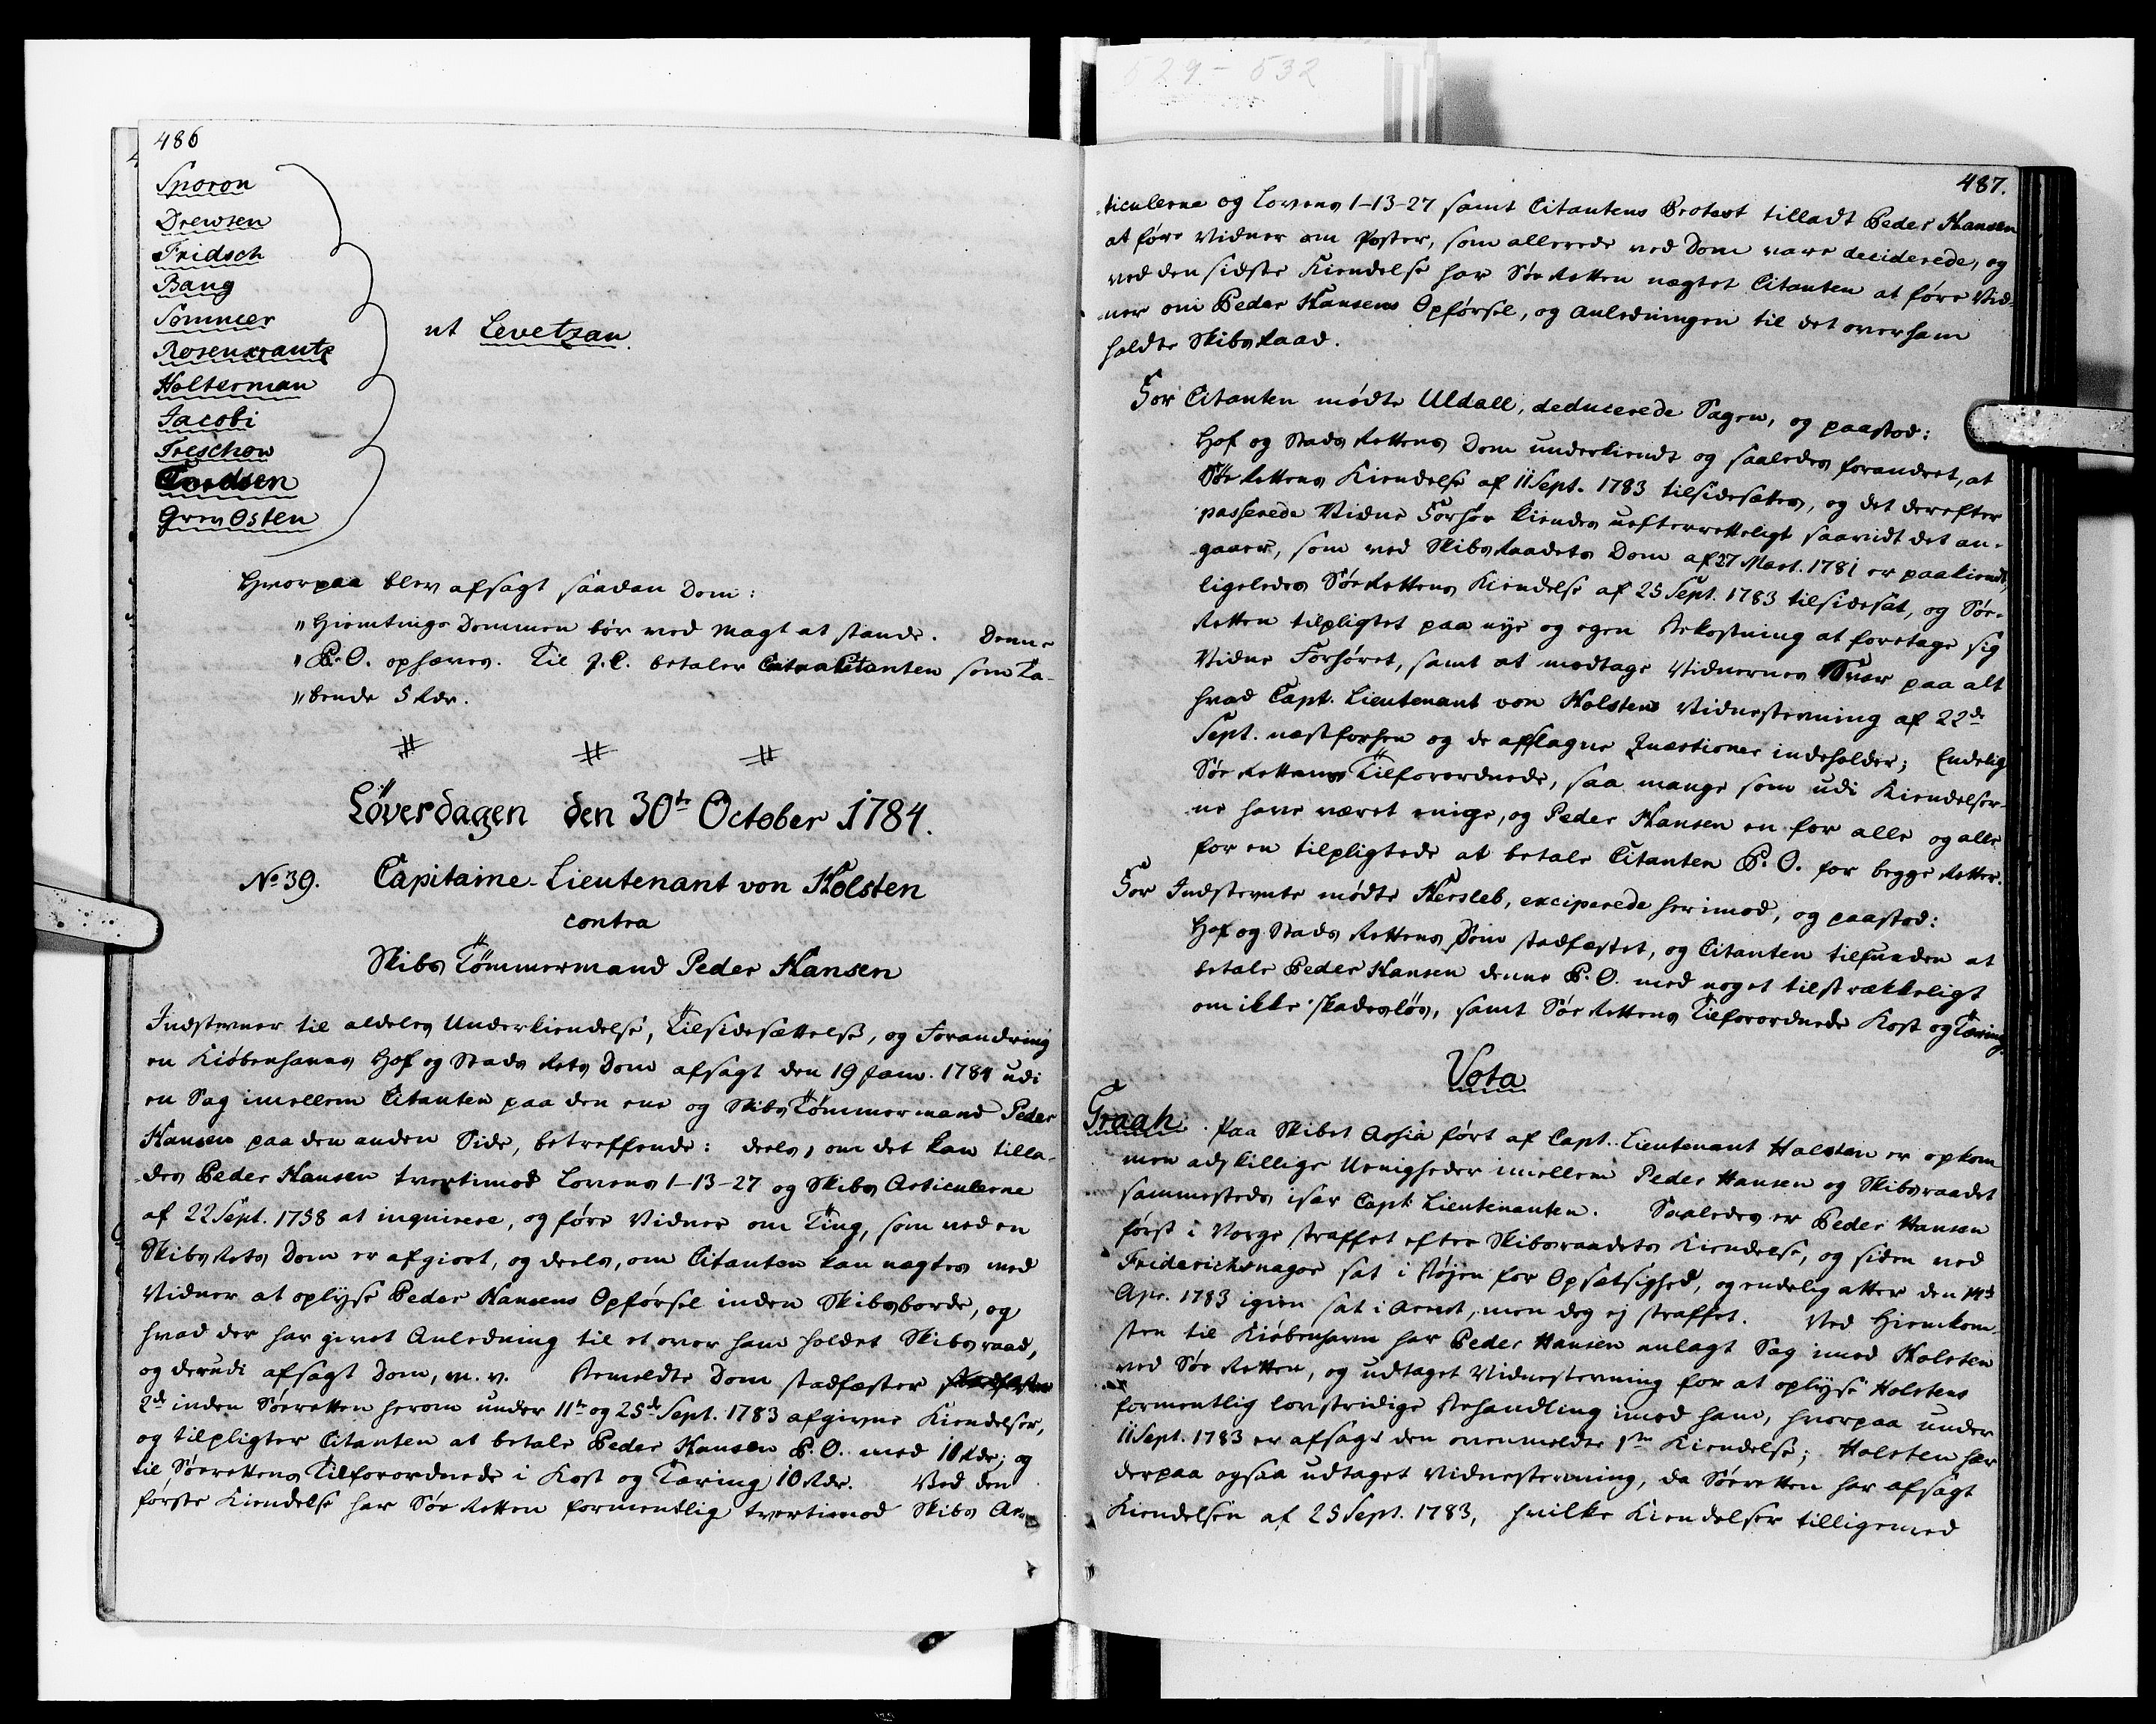 486
Sporon
Drewsen
Fridsch
Bang
Sommer
Rosenkrantz
Holterman
Jacobi
Treschow
Cordsen
Grev Osten
ut Levetzau.
Hvorpaa blev afsagt saadan Dom:
"Hiemtings Dommen bör ved Magt at stande. Denne
"P.O. ophæves. Til J.C. betaler ContraCitanten som Ta-
"bende 5 Rdr.
Löverdagen den 30te October 1784.
No 39. Capitaine-Lieutenant von Holsten
contra
Skibs Tömmermand Peder Hansen
Indstevner til aldeles Underkiendelse, Tilsidesættelse, og Forandring
en Kiöbenhavns Hof og Stads Rets Dom afsagt den 19 Janv. 1784 udi
en Sag imellem Citanten paa den ene og Skibs Tömmermand Peder
Hansen paa den anden Side, betreffende: deels, om det kan tilla-
des Peder Hansen tvertimod Lovens 1-13-27 og Skibs Articulerne
af 22 Sept. 1758 at inqvirere, og före Vidner om Ting, som ved en
Skibs Rets Dom er afgiort, og deels, om Citanten kan nægtes med
Vidner at oplyse Peder Hansens Opförsel inden Skibsborde, og
hvad der har givet Anledning til et over ham holdet Skibsraad,
og derudi afsagt Dom, m.v. Bemeldte Dom stadfæster
2de inden Söeretten herom under 11te og 25de Sept. 1783 afgivne Kiendelser,
og tilpligter Citanten at betale Peder Hansen P.O. med 10 Rdr; og
til Söerettens Tilforordnede i Kost og Tæring 10 Rdr. Ved den
förste Kiendelse har Söe Retten formentlig tvertimod Skibs Ar-
529-532
487.
ticulerne og Lovens 1-13-27 samt Citantens Protest tilladt Peder Hansen
at före Vidner om Poster, som allerede ved Dom vare deciderede, og
ved den sidste Kiendelse har Söe Retten nægtet Citanten at före Vid-
ner om Peder Hansens Opförsel, og Anledningen til det over ham
holdte Skibs Raad.
For Citanten mödte Uldall, deducerede Sagen, og paastod:
Hof og Stads Rettens Dom underkiendt og saaledes forandret, at
Söe Rettens Kiendelse af 11 Sept. 1783 tilsidesættes, og det derefter
passerede Vidne Forhör kiendes uefterretteligt saavidt det an-
gaaer, som ved Skibs Raadets Dom af 27 Mart. 1781 er paakiendt,
ligeledes Söe Rettens Kiendelse af 25 Sept. 1783 tilsidesat, og Söe-
Retten tilpligtet paa nye og egen Bekostning at foretage sig
Vidne Forhöret, samt at modtage Vidnernes Svar paa alt
hvad Capt. Lieutenant von Holstens Vidnestevning af 22de
Sept. næstforhen og de afslagne Qvæstioner indeholder; Endelig
Söe Rettens Tilforordnede, saa mange som udi Kiendelser-
ne have været enige, og Peder Hansen en for alle og alle
for en tilpligtede at betale Citanten P.O. for begge Retter.
For Indstevnte mödte Hersleb, exciperede herimod, og paastod:
Hof og Stads Rettens Dom stadfæstet, og Citanten tilfunden at
betale Peder Hansen denne P.O. med noget tilstrækkeligt
om ikke skadeslös, samt Söe Rettens Tilforordnede Kost og Tæring.
Vota
Graah. Paa Skibet Asia fört af Capt. Lieutenant Holsten er opkom
men adskillige Uenigheder imellem Peder Hansen og Skibsraadet
sammesteds især Capt. Lieutenanten. Saaledes er Peder Hansen
först i Norge straffet efter Skibsraadets Kiendelse, og siden ved
Friderichsnagor sat i Böjen for Opsætsighed, og endelig atter den 14de
Apr. 1783 igien sat i Arrest, men dog ej straffet. Ved Hiemkom-
sten til Kiöbenhavn har Peder Hansen anlagt Sag imod Holsten
ved Söe Retten, og udtaget Vidnestevning for at oplyse Holstens
formentlig lovstridige Behandling imod ham, hvorpaa under
11 Sept. 1783 er afsagt den ovenmeldte 1ste Kiendelse; Holsten har
derpaa ogsaa udtaget Vidnestevning, da Söeretten har afsagt
Kiendelsen af 25 Sept. 1783, hvilke Kiendelser tilligemed